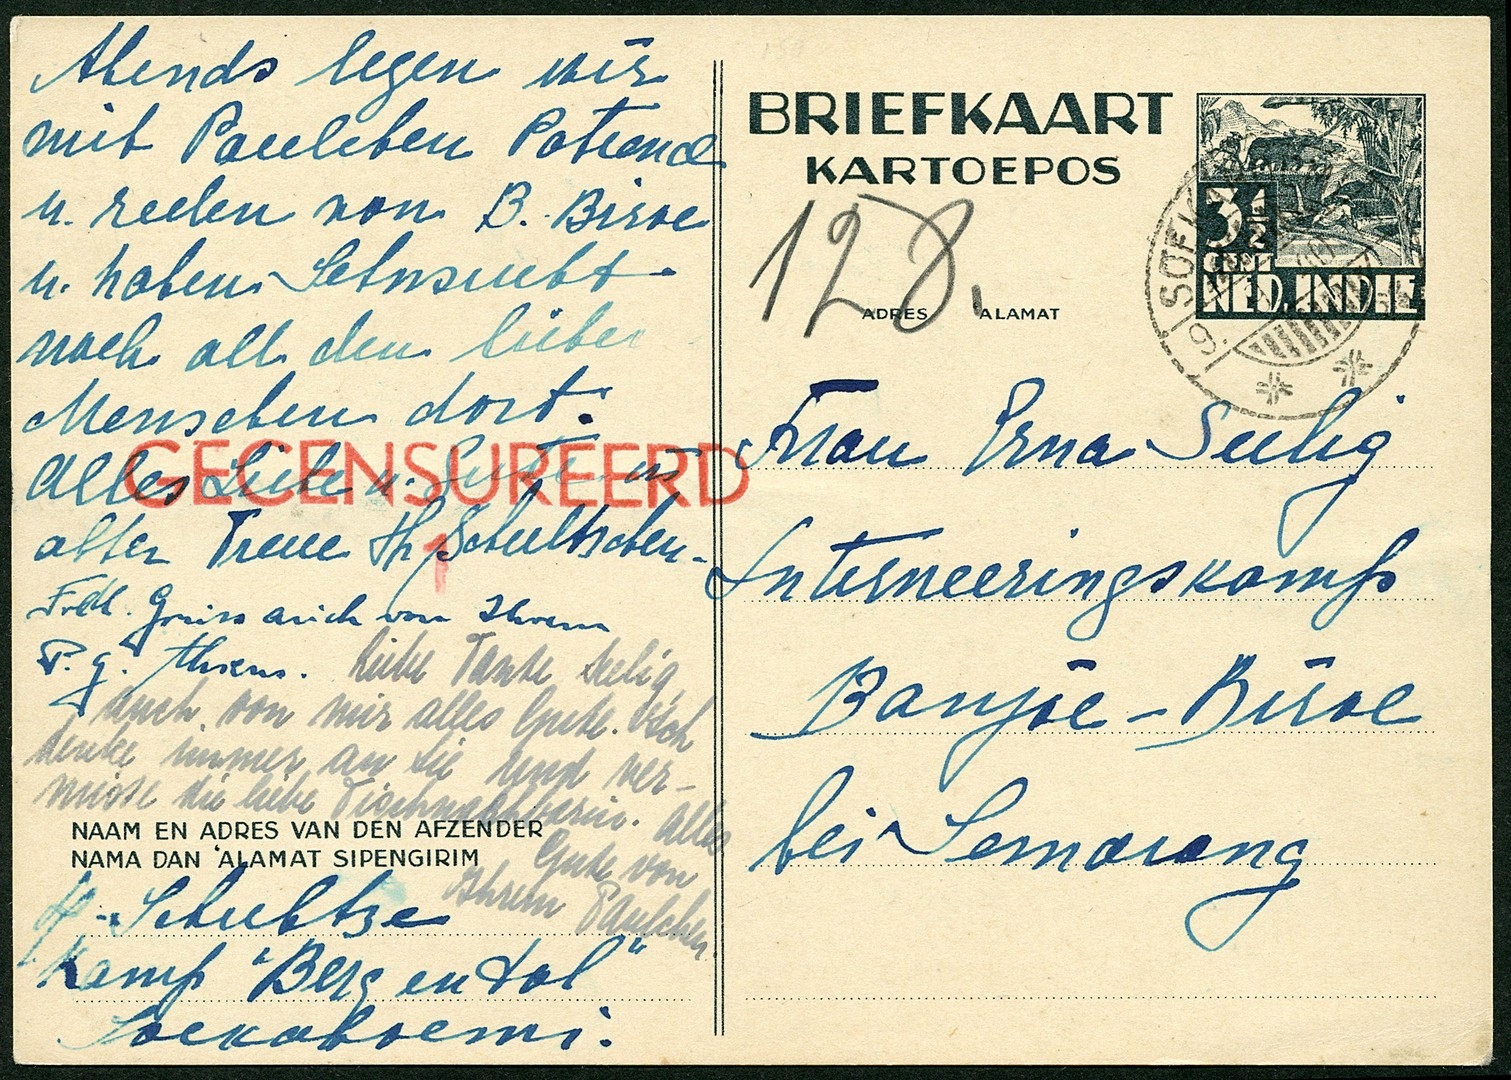 Abends legen wir
mit Paulchen Patience
u. reden von B. Biroe
u. haben Sehnsucht
nach all den lieben
Menschen dort.
Alles Liebe u. Gute in
alter Treue H. Schultzchen-
Frdl. Gruss auch von Ihrem
P. g. Ahrens.
Liebe Tante Seelig,
auch von mir alles Gute. Ich
denke immer an Sie und ver-
misse die liebe Tischnachbarin. Alles
Gute von
Ihrem Paulchen.
GECENSUREERD
1
NAAM EN ADRES VAN DEN AFZENDER
NAMA DAN 'ALAMAT SIPENGIRIM
H. Schultze
Kamp "Berg en Dal"
Soekaboemi.
BRIEFKAART
KARTOEPOS
128.
ADRES 'ALAMAT
3½
CENT
NED. INDIE
Frau Erna Seelig
Interneeringskamp
Banjoe-Biroe
bei Semarang